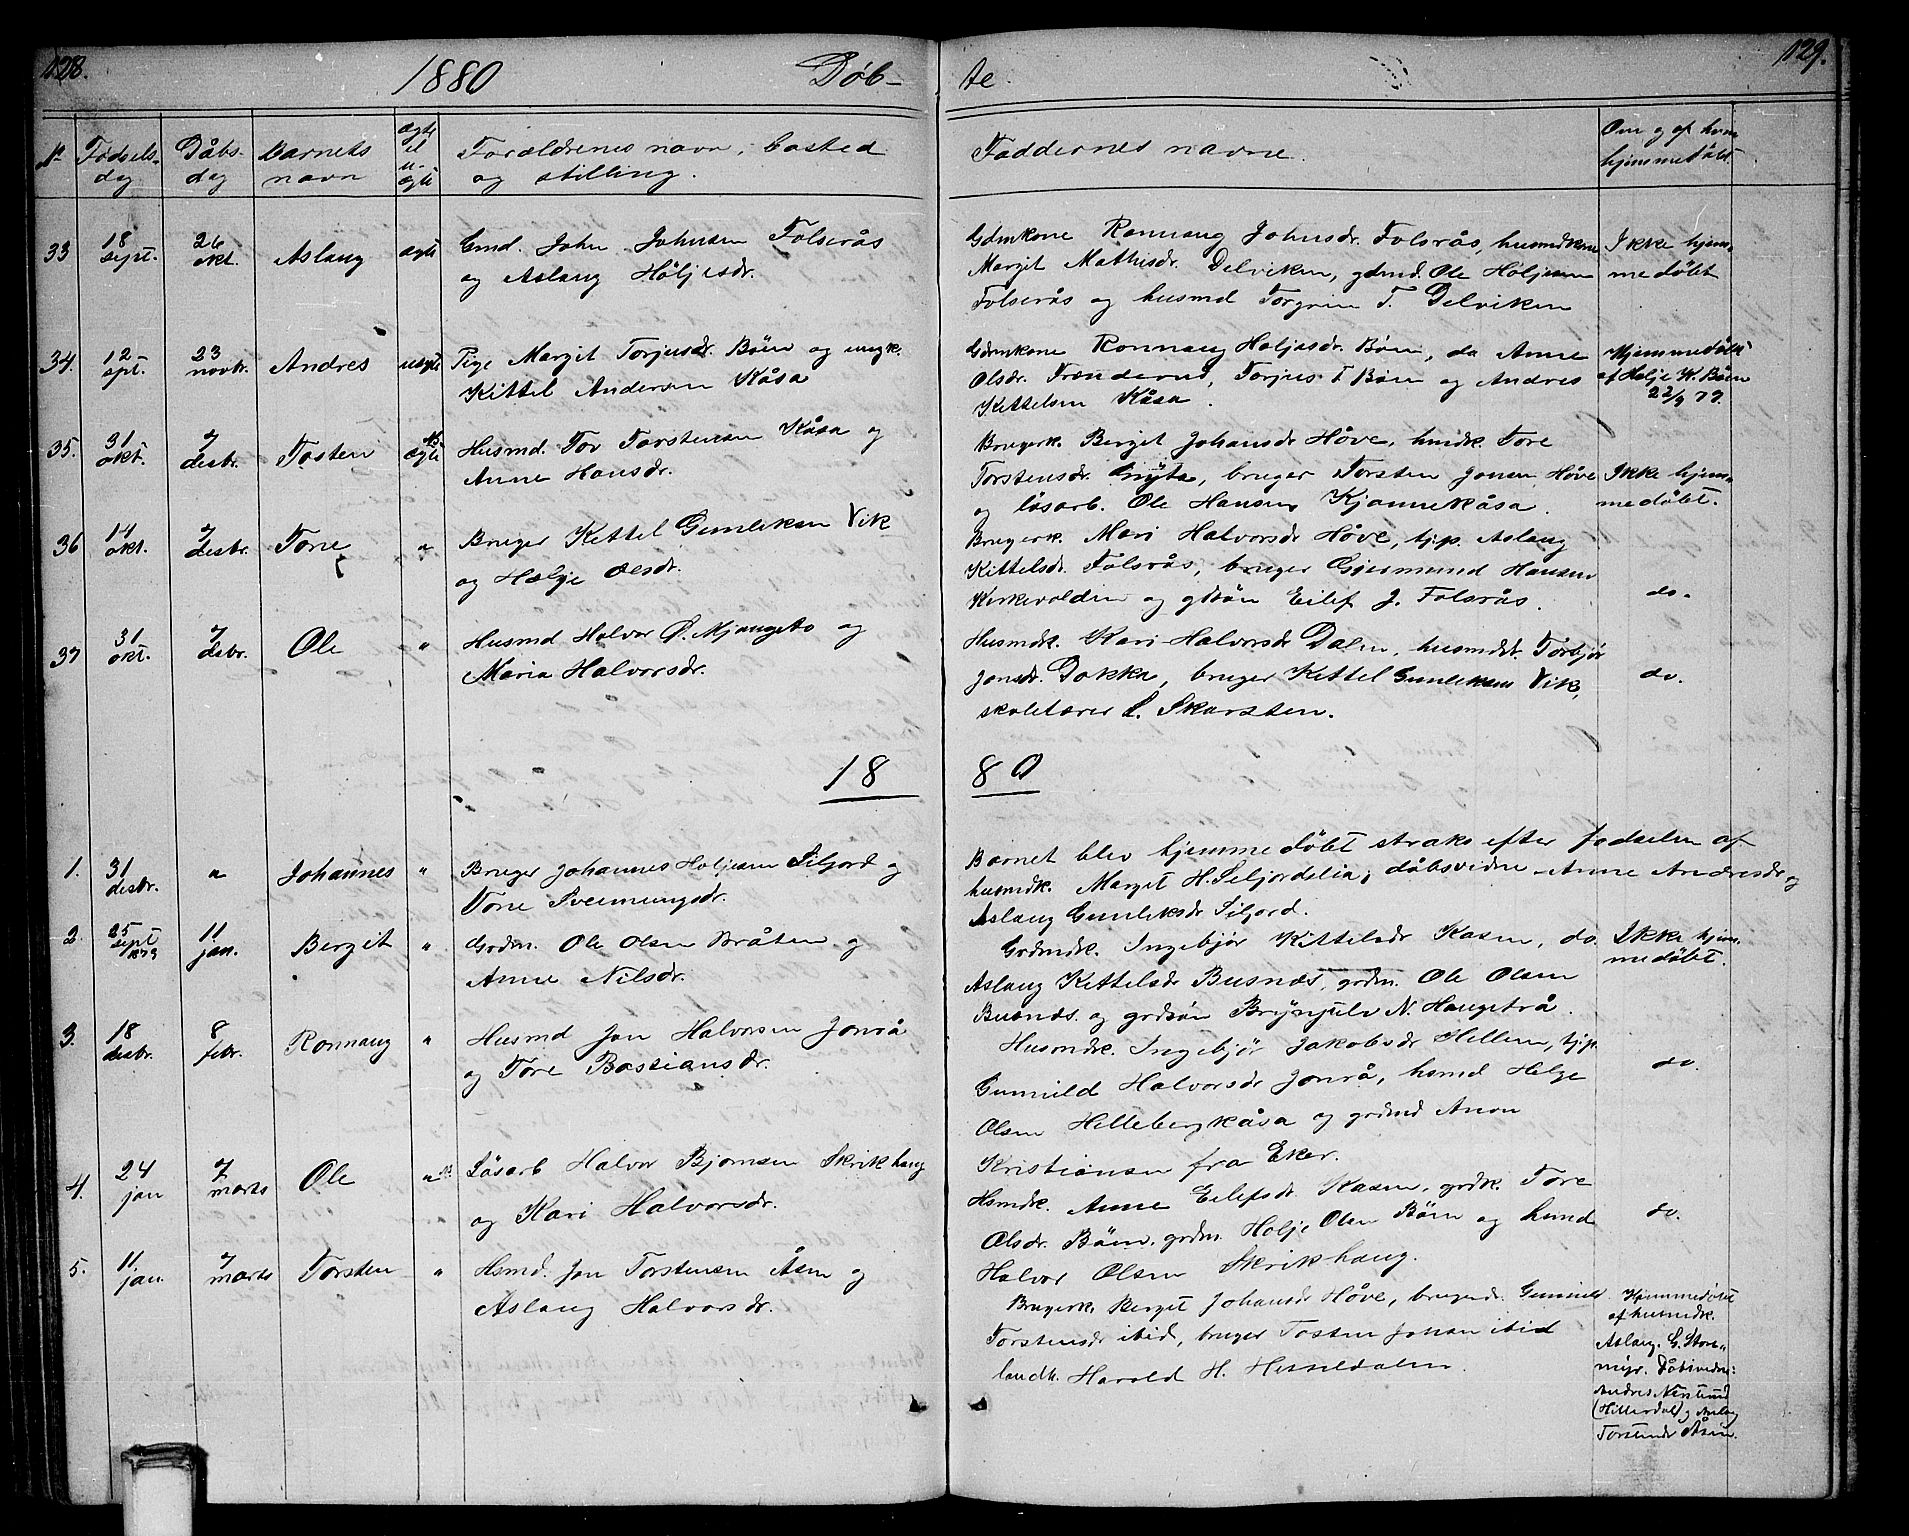 128. 1880 Døb- te. 129.
Nr Fødsels- dag Dåbs- dag Barnets navn ægte el u- ægte Forældrenes navn, bosted og stilling. Faddernes navne. Om og af hvem hjemmedøbt
33 18 sept. 26 okt. Aslaug ægte Gmd. John Johnsen Folserås
og Aslaug Höljesdr.
Gdmkone Ronnaug Johnsdr. Folsrås, husmdkone
Margit Mathisdr. Delviken, gdmd. Ole Höljesen
Folserås og husmd Torgrim T. Delviken
Ikke hjem-
medöbt
34. 12 spt. 23 novbr. Andres uægte Pige Margit Torjusdr. Böen og ungk.
Kittel Andersen Kåsa
Gdmkone Ronnaug Holjesdr. Böen, do Anne
Olsdr. Trænderud, Torjus T. Böen og Andres
Kettelsen Kåsa.
Hjemmedöbt
af Holje K. Böen
22/9 79.
35. 31 okt. 7 desbr. Tosten ægte Husmd. Tov Torstensen Kåsa og
Anne Hansdr.
Brugerk. Berget Johansdr Höve, husdk. Tore
Torstensdr. bruger Torsten Jonsen Höve
og lösarb. Ole Hansen Kjonnekåsa.
Ikke hjem-
medöbt.
36 14 okt. 7 desbr. Tone " Bruger Kettel Gunleksen Vik
og Hælje Olsdr.
Brugerk. Mari Halvorsdr Höve, tjp. Aslaug
Kittelsdr. Folsrås, bruger Gjermund Hansen
Kirkevolden og gdsön Eilef J. Folsrås.
do.
37 31 okt. 7 desbr. Ole " Husmd Halvor O. Mjangeto og
Maria Halvorsdr.
Husmdk. Kari Halvorsdr Dalen, husmdst. Torbjör
Jonsdr. Dokka, bruger Kettel Gunleksen Vik,
skolelærer L. Skarsten.
do.
18 80
1. 31 desbr. " Johannes " Bruger Johannes Holjesen Siljord og
Tone Sveinungsdr.
Barnet blev hjemmedöbt straks efter födselen af
husmdk. Marget H. Seljordslia, dåbsvidne Anne Andresdr og
Aslaug Gunleksdr Siljord.
2. 25 sept 1879 11 jan. Bergit " Grdm. Ole Olsen Bråten og
Anne Nilsdr.
Grdmdk. Ingebjör Kittelsdr Kasen, do.
Aslaug Kettelsdr Busnæs, grdm. Ole Olsen
Busnæs. og grdsön Brynjulv N. Haugetrå.
Ikke hjem-
medöbt.
3. 18 desbr. 8 febr. Ronnaug " Husmd Jon Halvorsen Jonrå
og Tore Bastiansdr.
Husmdk. Ingebjör Jakobsdr Hellem, tjp.
Gunnild Halvorsdr Jonrå, hsmd Helge
Olsen Hellebergkåsa og grdmd Anon
Kristiansen fra Eker.
do.
4. 24 jan 7 marts Ole " Lösarb Halvor Bjornsen Skrikhaug
og Kari Halvorsdr.
Hsmdk. Anne Eilefsdr Kasen, grdk. Tore
Olsdr. Böen, grdm. Holje Olsen Böen og husmd
Halvor Olsen Skrikhaug.
do.
5. 11. jan. 7 marts Torsten " Hsmd. Jon Torstensen Åsen og
Aslaug Halvorsdr.
Brugerk. Berget Johansdr Höve, brugerd. Gunnild
Torstensdr ibid, bruger Tosten Johnsen ibid
landh. Harald H. Hisseldalen.
Hjemmedöbt
af husmdk.
Aslaug G. Store-
myr. Dåbsvidne:
Andres Nistund
(Hitterdal) og Aslaug
Torstensdr Åsen.